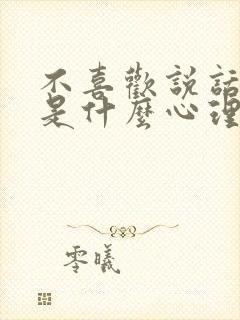 不喜歡説話
是什麼心理
零曦